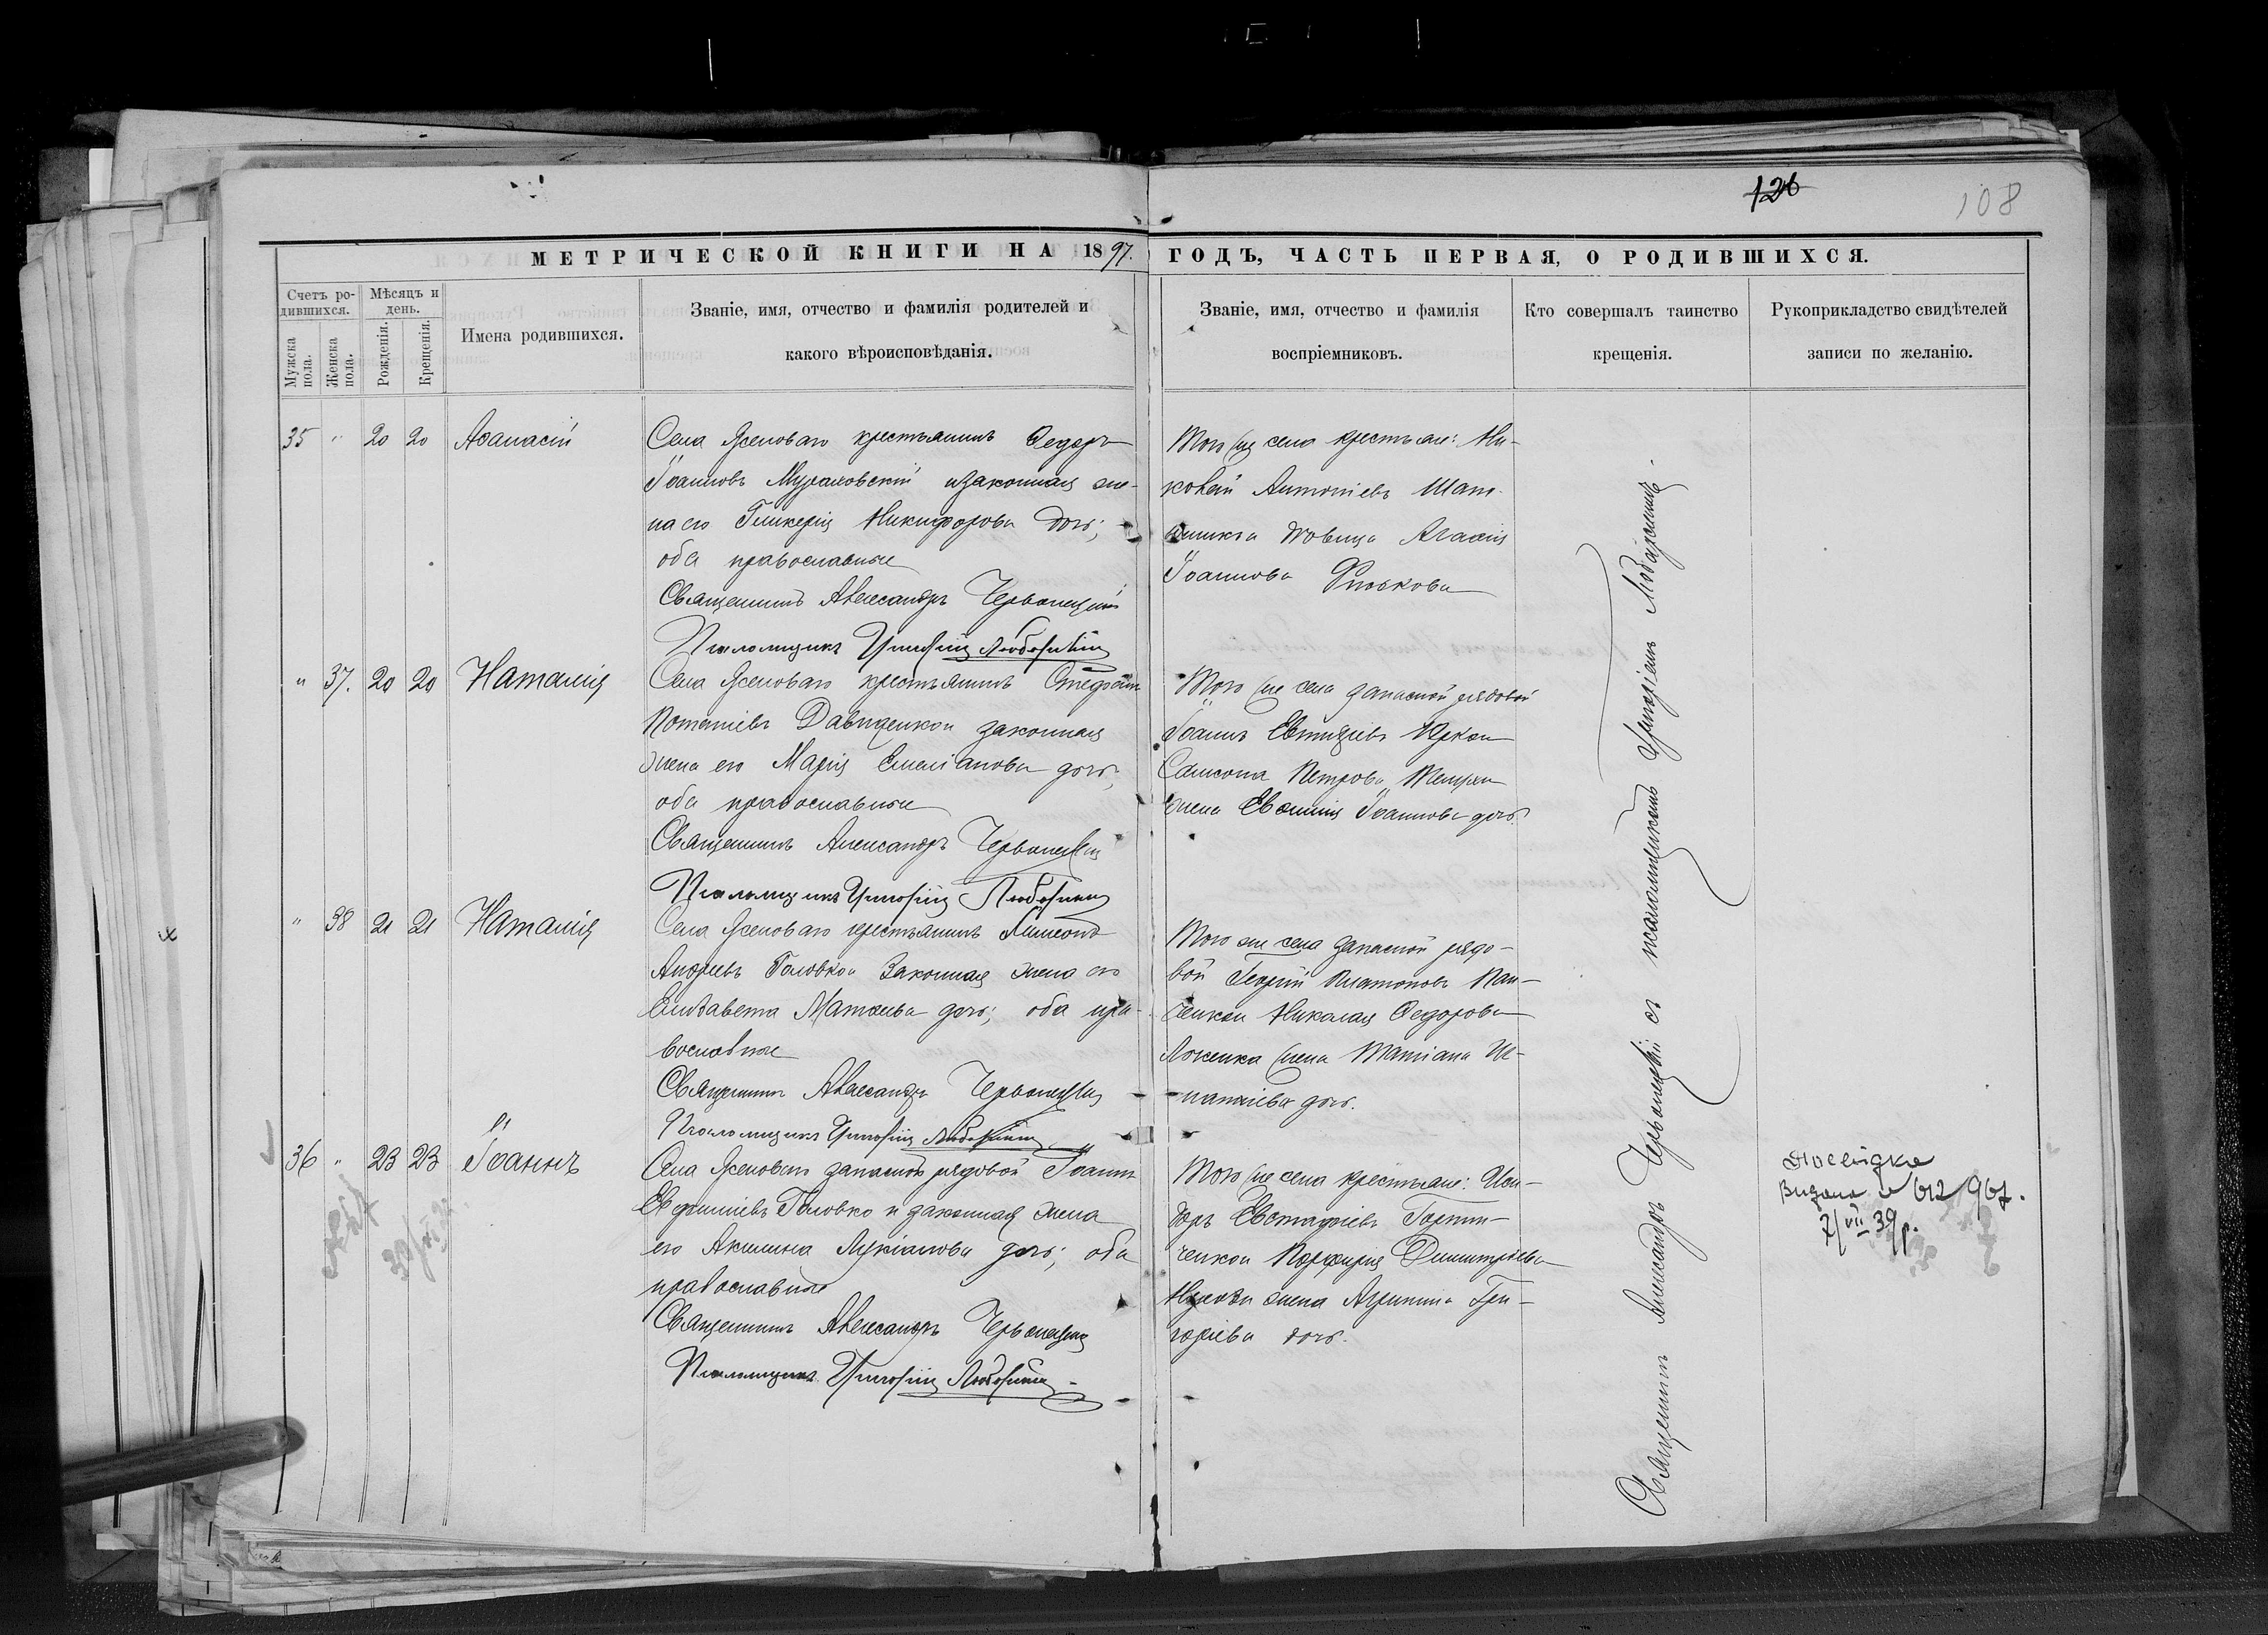 126
108
МЕТРИЧЕСКОЙ КНИГИ НА 1897. ГОДЪ, ЧАСТЬ ПЕРВАЯ, О РОДИВШИХСЯ.
Счетъ ро-
дившихся.
Мужска пола.
Женска пола.
Мѣсяцъ и день.
Рожденія.
Крещенія.
Имена родившихся.
Званіе, имя, отчество и фамилія родителей и
какого вѣроисповѣданія.
Званіе, имя, отчество и фамилія
воспріемниковъ.
Кто совершалъ таинство
крещенія.
Рукоприкладство свидѣтелей
записи по желанію.
35 " 20 20 Аѳанасій
Села Ясеноваго крестьянинъ Ѳедоръ
Іоанновъ Мураховскій и законная же-
на его Гликерія Никифорова дочь;
оба православные
Священникъ Александръ Червонецкій
Псаломщикъ Григорій
Того же села крестьяне: Ни-
колай Антоніевъ
дѣвица Агафія
Іоаннова
" 37. 20 20 Наталія
Села Ясеноваго крестьянинъ Стефанъ
Потапіевъ Давиденко и законная
жена его Марія Емеліанова дочь,
оба православные
Священникъ Александръ Червонецкій
Псаломщикъ Григорій
Того же села запасной рядовой
Іоаннъ Евтихіевъ
Самсона Петрова
жена Евфимія Іоаннова дочь.
" 38 21 21 Наталія
Села Ясеноваго крестьянинъ Симеонъ
Андреевъ Головко и законная жена его
Елисавета Матѳеева дочь; оба пра-
вославные
Священникъ Александръ Червонецкій
Псаломщикъ Григорій
Того же села запасной рядо-
вой Георгій Платоновъ Пан-
ченко и Николая Ѳедорова
жена Татіана Иг-
натіева дочь.
36 " 23 23 Іоаннъ
Села Ясеноваго запасной рядовой Іоаннъ
Евфиміевъ Головко и законная жена
его Акилина Лукіанова дочь; оба
православные
Священникъ Александръ Червонецкій
Псаломщикъ Григорій
Того же села крестьяне: Иси-
доръ Евстафіевъ
ченко и Порфирія Димитріева
жена Агрипина Гри-
горіева дочь.
Священникъ Александръ Червонецкій съ псаломщикомъ Григоріемъ
Видана
7/VII 39 р.